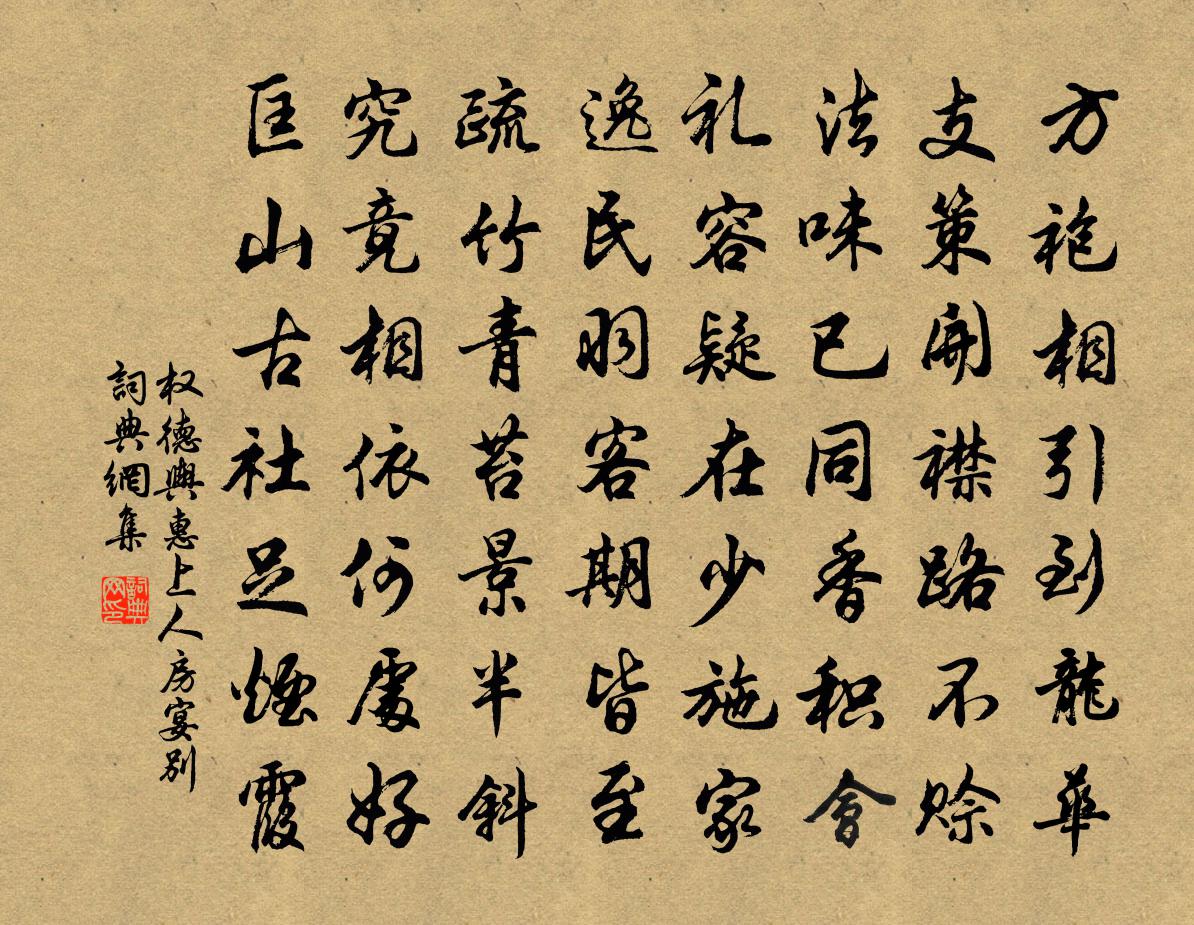 方袍相引到龍華
支策開襟路不賒
法味已同香积會
礼容疑在少施家
逸民羽客期皆至
疏竹青苔景半斜
究竟相依何處好
匡山古社足煙霞
权德輿惠上人房宴別
詞典網集
詞典网印